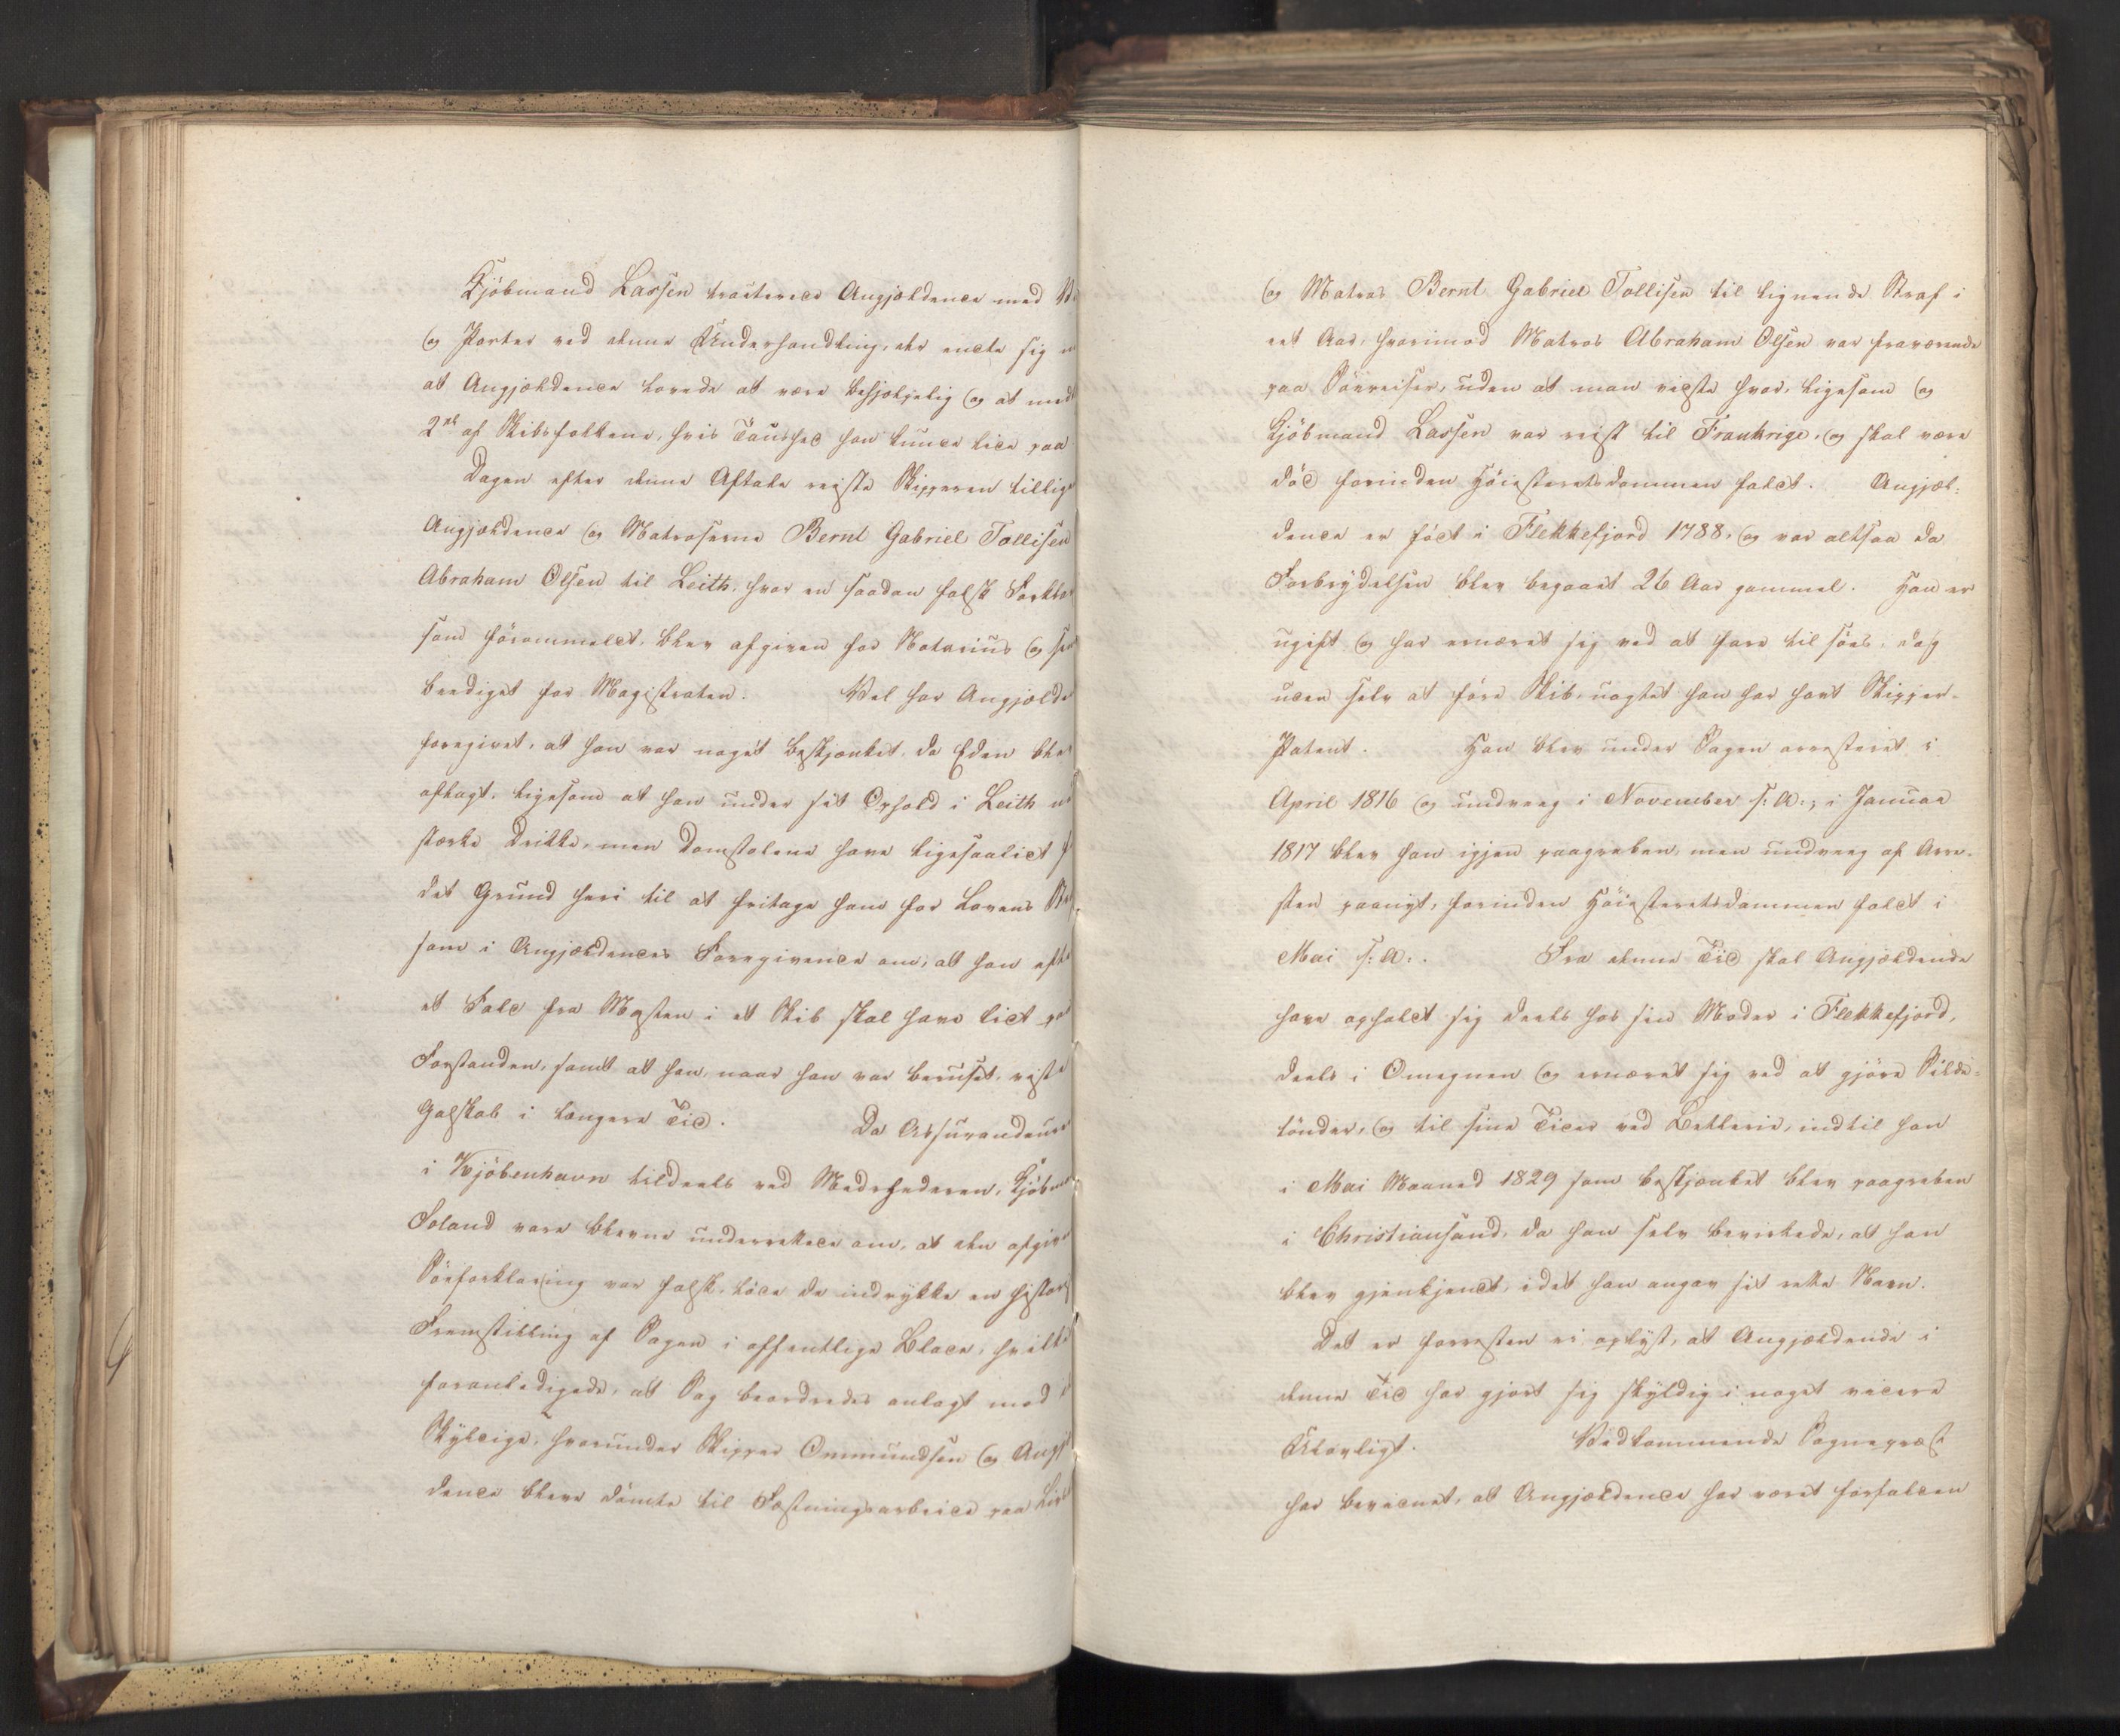 Kjöbmand Lassen tracterede Angjældende med
og Porter ved denne Underhandling, der endte sig
at Angjældende lovede at være behjelpelig og at med
2de af Skibsfolkene, hvis Taushed han kunde lide paa
Dagen efter denne Aftale reiste Skipperen tillige
Angjældende og Matroserne Bernt Gabriel Tollisen
Abraham Olsen til Leith, hvor en saadan falsk Forklar
som förommeldt, blev afgiven for Notarius og
beediget for Magistraten. Vel har Angjælde
foregivet, at han var noget beskjænket, da Eden blev
aflagt, ligesom at han under sit Ophold i Leith
stærke Drikke, men Domstolene have ligesaalidt
det Grund heri til at fritage ham for Lovens
som i Angjældendes Foregivende om, at han efter
et Fald fra Masten i et Skib skal have lidt paa
Forstanden, samt at han, naar han var beruset, viste
Galskab i længere Tid. Da Assurandeurer
i Kjöbenhavn tildeels ved Medrhederen, Kjöbm
Foland vare blevne underrettede om, at den afgivne
Söeforklaring var falsk, lode de indrykke en historisk
Fremstilling af Sagen i offentlige Blade, hvilket
foranledigede, at Sag beordredes anlagt mod
Skyldige, hvorunder Skipper Ommundsen og Angjæl
dende bleve dömte til Fæstningsarbeide paa Livs
og Matros Bernt Gabriel Tollisen til lignende Straf i
eet Aar, hvorimod Matros Abraham Olsen var fraværende
paa Söereiser, uden at man vidste hvor, ligesom og
Kjöbmand Lassen var reist til Frankrige, og skal være
död forinden Höiesteretsdommen faldt. Angjæl-
dende er född i Flekkefjord 1788, og var altsaa da
Forbrydelsen blev begaaet 26 Aar gammel. Han er
ugift og har ernæret sig ved at fare til söes, dog
uden selv at före Skib, uagtet han har havt Skipper-
Patent. Han blev under Sagen arresteret i
April 1816 og undveeg i November s: A:, i Januar
1817 blev han igjen paagreben, men undveeg af Arre-
sten paanyt, forinden Höiesteretsdommen faldt i
Mai s: A:. Fra denne Tid skal Angjældende
have opholdt sig deels hos sin Moder i Flekkefjord,
deels i Omegnen og ernæret sig ved at gjöre Silde-
tönder, og til sine Tider ved Betlerie, indtil han
i Mai Maaned 1829 som beskjænket blev paagreben
i Christiansand, da han selv bevirkede, at han
blev gjenkjendt, idet han angav sit rette Navn.
Det er forresten ei oplyst, at Angjældende i
denne Tid har gjort sig skyldig i noget videre
Ulovligt. Vedkommende Sognepræst
har bevidnet, at Angjældende har været forfalden